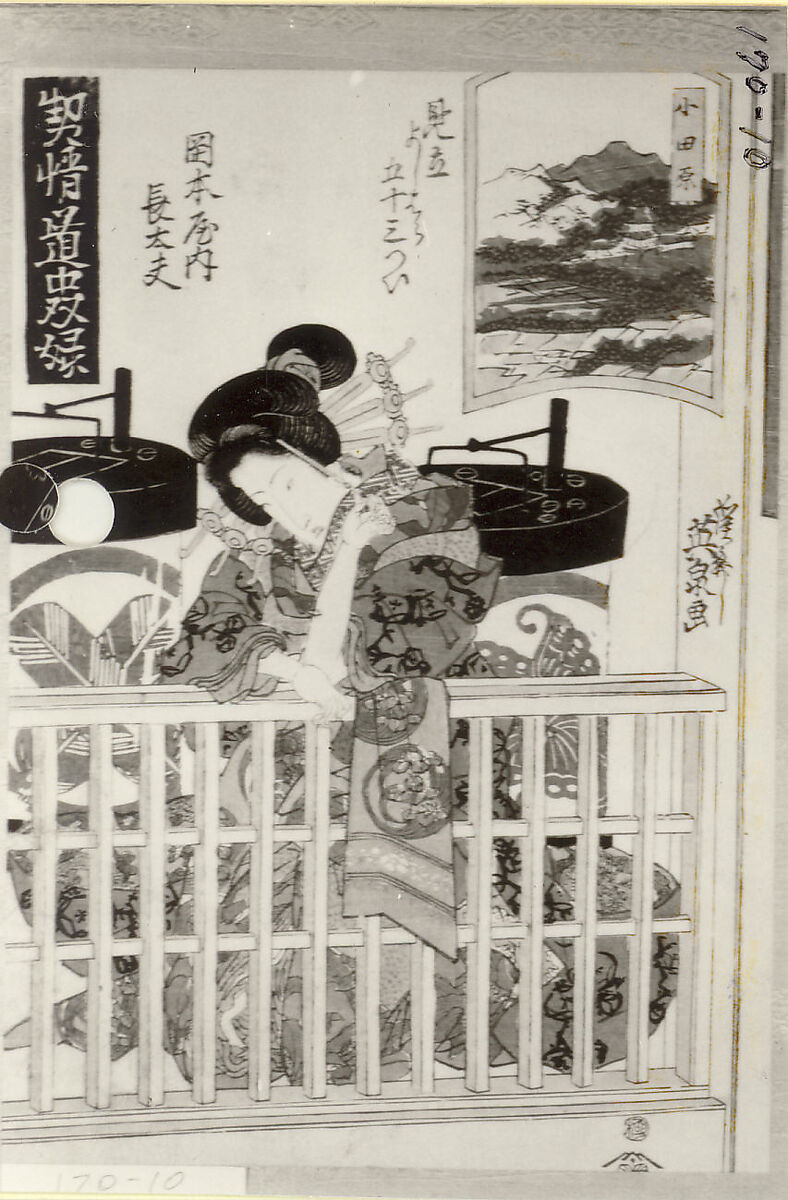 小田原
見立
よしはら
五十三つい
岡本屋内
長太夫
契情道中双婇
溪斎
英泉画
170-10
170-10